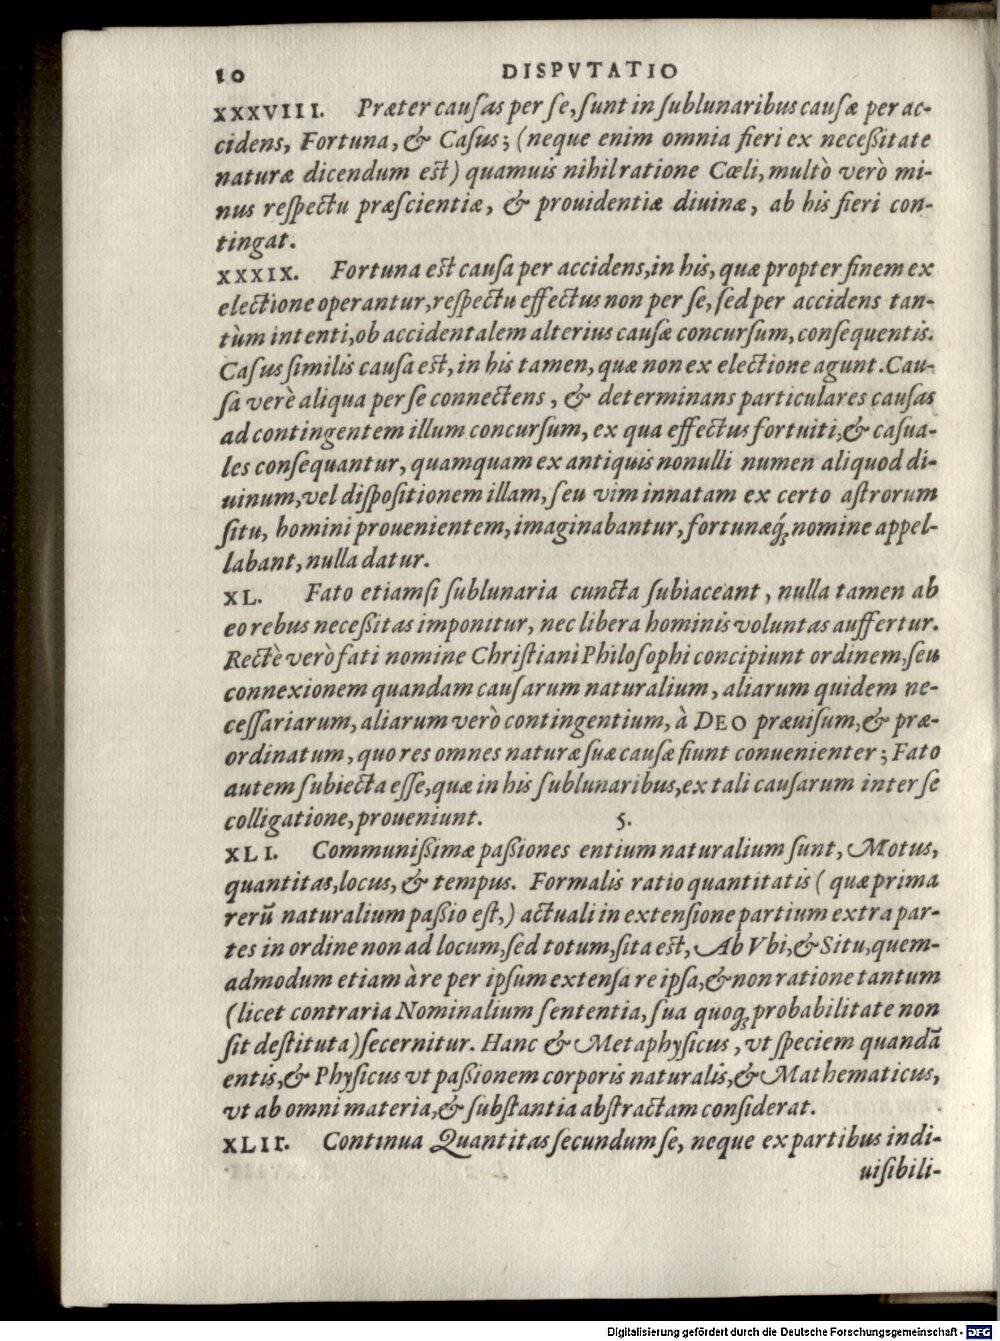 10 DISPVTATIO
XXXVIII. Præter cauſas per ſe, ſunt in ſublunaribus cauſæ per ac-
cidens, Fortuna, & Caſus; (neque enim omnia fieri ex neceßitate
naturæ dicendum est) quamuis nihil ratione Cœli, multò verò mi-
nus reſpectu præſcientiæ, & prouidentiæ diuinæ, ab his fieri con-
tingat.
XXXIX. Fortuna est cauſa per accidens, in his, quæ propter finem ex
electione operantur, reſpectu effectus non per ſe, ſed per accidens tan-
tùm intenti, ob accidentalem alterius cauſæ concurſum, conſequentis.
Caſus ſimilis cauſa est, in his tamen, quæ non ex electione agunt. Cau-
ſa verè aliqua per ſe connectens, & determinans particulares cauſas
ad contingentem illum concurſum, ex qua effectus fortuiti, & caſua-
les conſequantur, quamquam ex antiquis nonulli numen aliquod di-
uinum, vel diſpoſitionem illam, ſeu vim innatam ex certo aſtrorum
ſitu, homini prouenientem, imaginabantur, fortunæq́; nomine appel-
labant, nulla datur.
XL. Fato etiamſi ſublunaria cuncta ſubiaceant, nulla tamen ab
eo rebus neceßitas imponitur, nec libera hominis voluntas auffertur.
Rectè verò fati nomine Chriſtiani Philoſophi concipiunt ordinem, ſeu
connexionem quandam cauſarum naturalium, aliarum quidem ne-
ceſſariarum, aliarum verò contingentium, à DEO præuiſum, & præ-
ordinatum, quo res omnes naturæ ſuæ cauſæ fiunt conuenienter; Fato
autem ſubiecta eſſe, quæ in his ſublunaribus, ex tali cauſarum inter ſe
colligatione, proueniunt. 5.
XLI. Communißimæ paßiones entium naturalium ſunt, Motus,
quantitas, locus, & tempus. Formalis ratio quantitatis ( quæ prima
rerū naturalium paßio eſt,) actuali in extenſione partium extra par-
tes in ordine non ad locum, ſed totum, ſita est, Ab Vbi, & Situ, quem-
admodum etiam à re per ipſum extenſa re ipſa, & non ratione tantum
(licet contraria Nominalium ſententia, ſua quoq; probabilitate non
ſit deſtituta) ſecernitur. Hanc & Metaphyſicus, vt ſpeciem quandā
entis, & Phyſicus vt paßionem corporis naturalis, & Mathematicus,
vt ab omni materia, & ſubſtantia abſtractam conſiderat.
XLII. Continua Quantitas ſecundum ſe, neque ex partibus indi-
uiſibili-
Digitalisierung gefördert durch die Deutsche Forschungsgemeinschaft - DFG